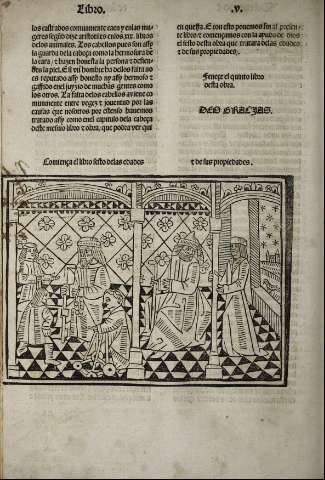 Libro.
.v.
los castrados comunmente caecen y en las mu
geres segund dize aristotiles enlos xxx. libros
delos animales. Los cabellos pues son assy
la guarda dela cabeça como la hermosura de
la cara, z hazen honesta la persona z defien-
den la piel. E si vn hombre ha dellos falta no
es reputado assy honesto ny assy hermoso z
gastido enel juyzio de muchas gentes como
los otros. La falta delos cabellos aviene co
munmente entre vegez z joventut por las
causas que nosotros por estenso havemos
tratado assy como enel capitulo dela cabeça
deste mesmo libro z obra, que podra ver qui
en quesiere. E con esto ponemos fin al presen-
te libro z començamos con la ayuda de dios
el sesto desta obra que tratara delas edades
z de sus propiedades.
Fenece el quinto libro
desta obra.
DEO GRACIAS.
Comença el libro sesto delas edades
z de sus propiedades.